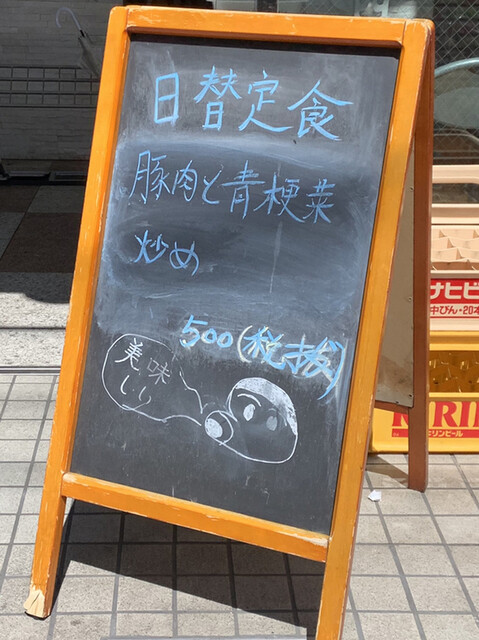 日替定食
豚肉と青梗菜
炒め
500(税抜)
美味
しい
ナヒビ
中びん・20本
KIRIN
キリンビール